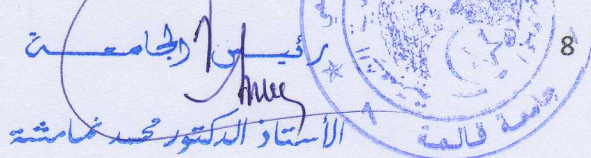 رئيس الجامعة
8
الأستاذ الدكتور محمد نمامشة
جامعة قالمة
1